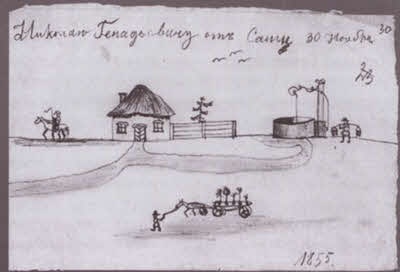 Николаю Генадьевичу отъ Саши 30 Ноября
30
1855.